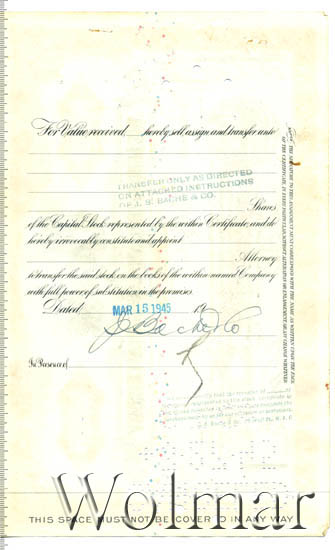 For Value received hereby sell, assign and transfer unto
TRANSFER ONLY AS DIRECTED
ON ATTACHED INSTRUCTIONS
OF J. S. BACHE & CO.
Shares
of the Capital Stock represented by the within Certificate, and do
hereby irrevocably constitute and appoint
Attorney
to transfer the said stock on the books of the within named Company
with full power of substitution in the premises.
Dated MAR 15 1945 19
J S Bache & Co
In Presence of
NOTICE: THE SIGNATURE TO THIS ASSIGNMENT MUST CORRESPOND WITH THE NAME AS WRITTEN UPON THE FACE
OF THE CERTIFICATE, IN EVERY PARTICULAR, WITHOUT ALTERATION OR ENLARGEMENT, OR ANY CHANGE WHATEVER.
Wolmar
THIS SPACE MUST NOT BE COVERED IN ANY WAY